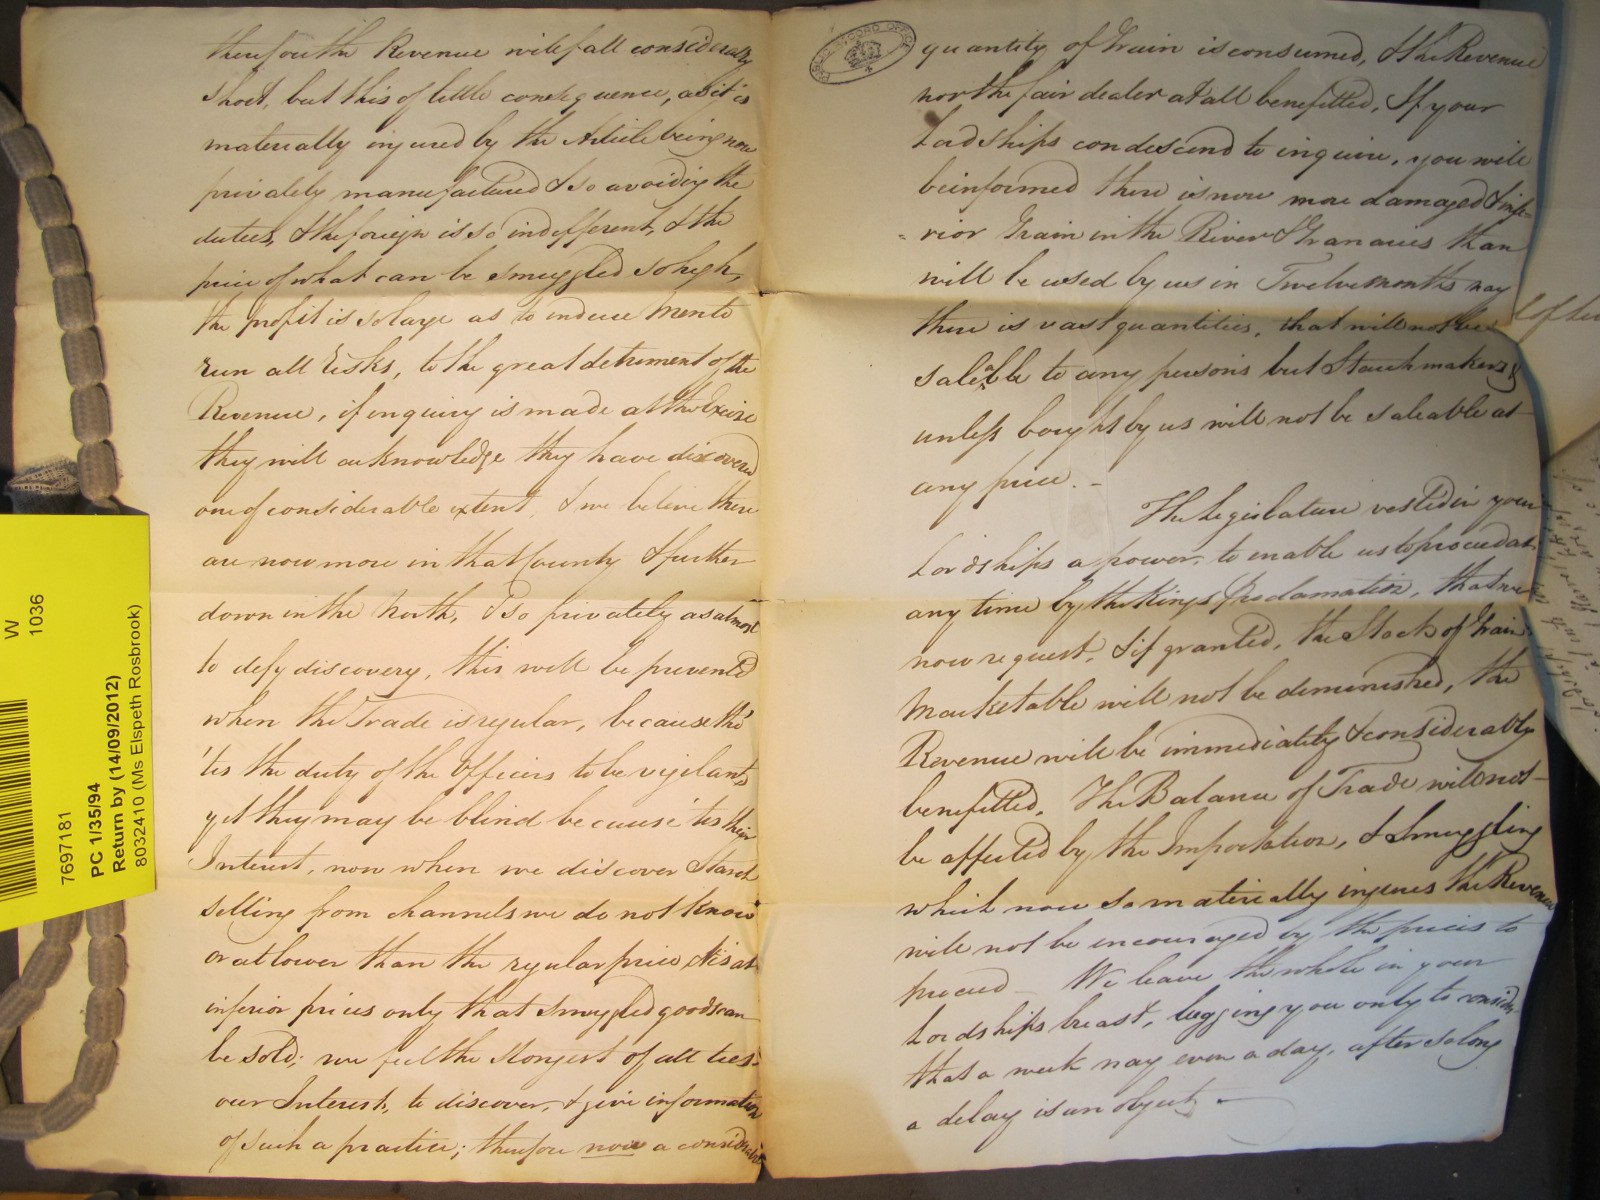 therefore the Revenue will fall considerably
short, but this of little consequence, as it is
materially injured by the Article being now
privately manufactured & so avoiding the
duties, & the foreign is so indifferent, & the
price of what can be smuggled so high,
the profit is so large as to induce Men to
run all risks, to the great detriment of the
Revenue, if enquiry is made at the Excise
they will acknowledge they have discovered
one of considerable extent, & we believe there
are now more in that County & further
down in the North, & so privately as almost
to defy discovery, this will be prevented
when the Trade is regular, because tho'
'tis the duty of the Officers to be vigilant,
yet they may be blind because 'tis their
Interest, now when we discover Starch
selling from channels we do not know
or at lower than the regular price, & 'tis at
inferior prices only that smuggled goods can
be sold; we feel the stongest of all ties-
our Interest, to discover, & give information
of such a practice; therefore now a considerable
PUBLIC RECORD OFFICE
quantity of Grain is consumed, & the Revenue
nor the fair dealer at all benefitted, If your
Lordships condescend to inquire, you will
be informed there is now more damaged & infe=
=rior Grain in the River & Granaries than
will be used by us in Twelve months nay
there is vast quantities, that will not be
saleable to any persons but Starchmakers &
unless bought by us will not be saleable at
any price. -
The Legislature vested in your
Lordships a power, to enable us to proceed at
any time by the Kings Proclamation, that we
now request, & if granted, the Stock of Grain
Marketable will not be diminished, the
Revenue will be immediately & considerably
benefitted, The Balance of Trade will not
be affected by the Importation, & Smuggling
which now so materially injures the Revenue
will not be encouraged by the prices to
proceed - We leave the whole in your
Lordships breast, begging you only to consider
that a week nay even a day, after so long
a delay is an object -
W
1036
7697181
PC 1/35/94
Return by (14/09/2012)
8032410 (Ms Elspeth Rosbrook)